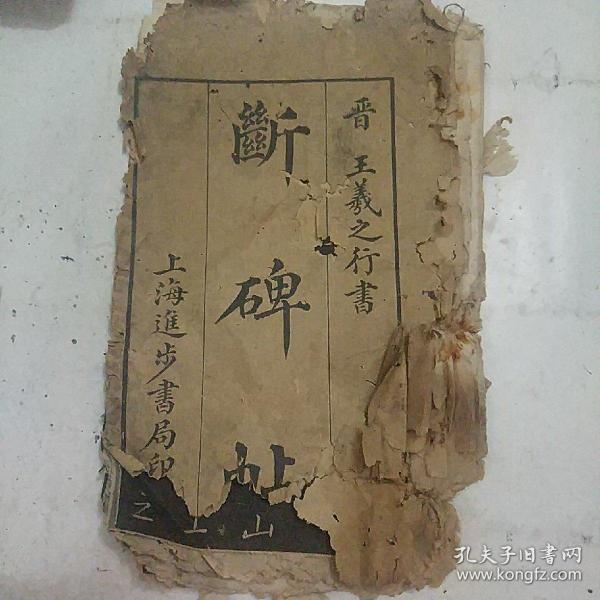 晋 王羲之行書
斷碑
上海進步書局印
山
之
孔夫子旧書网
www.kongfz.com